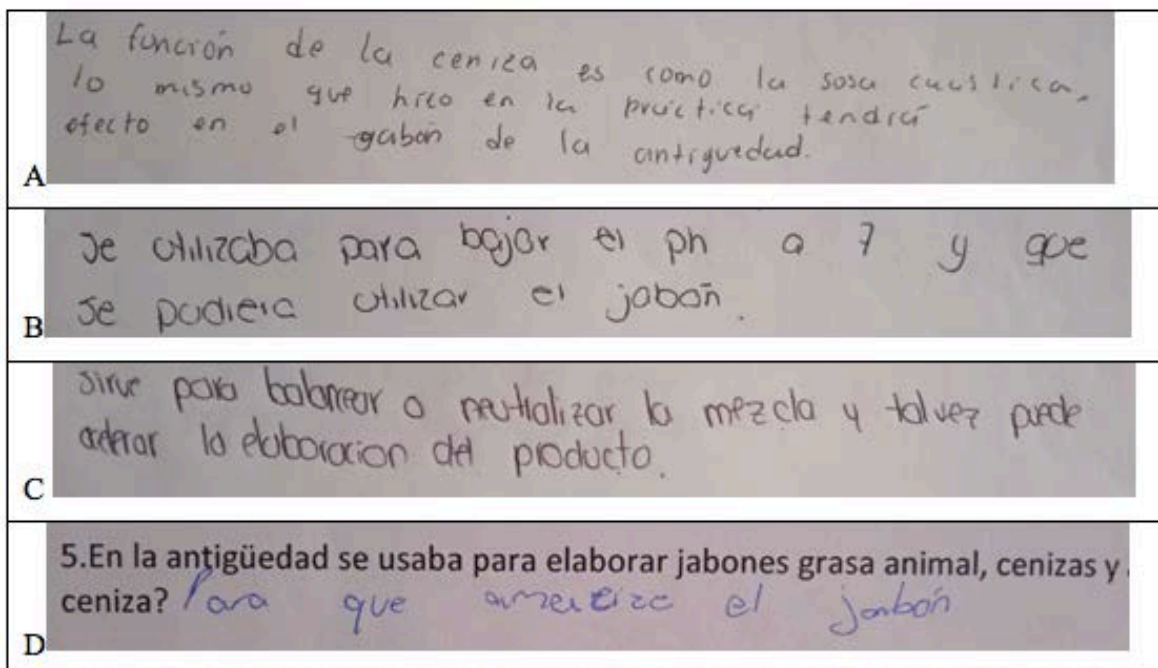 La función de la ceniza es como la sosa caustica,
lo mismo que hizo en la práctica tendría
efecto en el gabón de la antiguedad.
A
Se utilizaba para bajar el ph a 7 y que
se pudiera utilizar el jabón.
B
Sirve para balancear o neutralizar la mezcla y talvez puede
la elaboracion del producto.
C
5.En la antigüedad se usaba para elaborar jabones grasa animal, cenizas y
ceniza? Para que el jabón
D